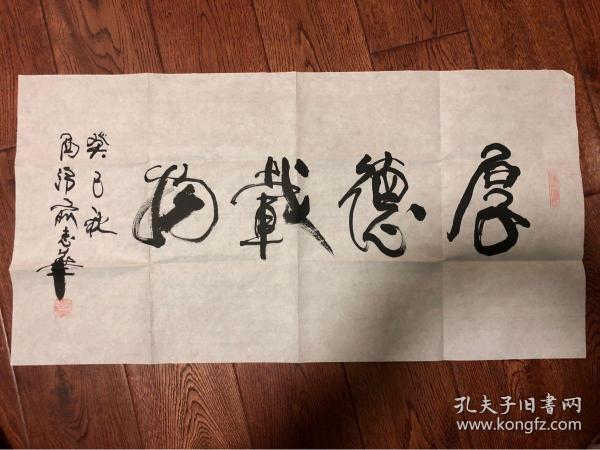 厚德載物
癸巳秋
志華
孔夫子旧書网
www.kongfz.com